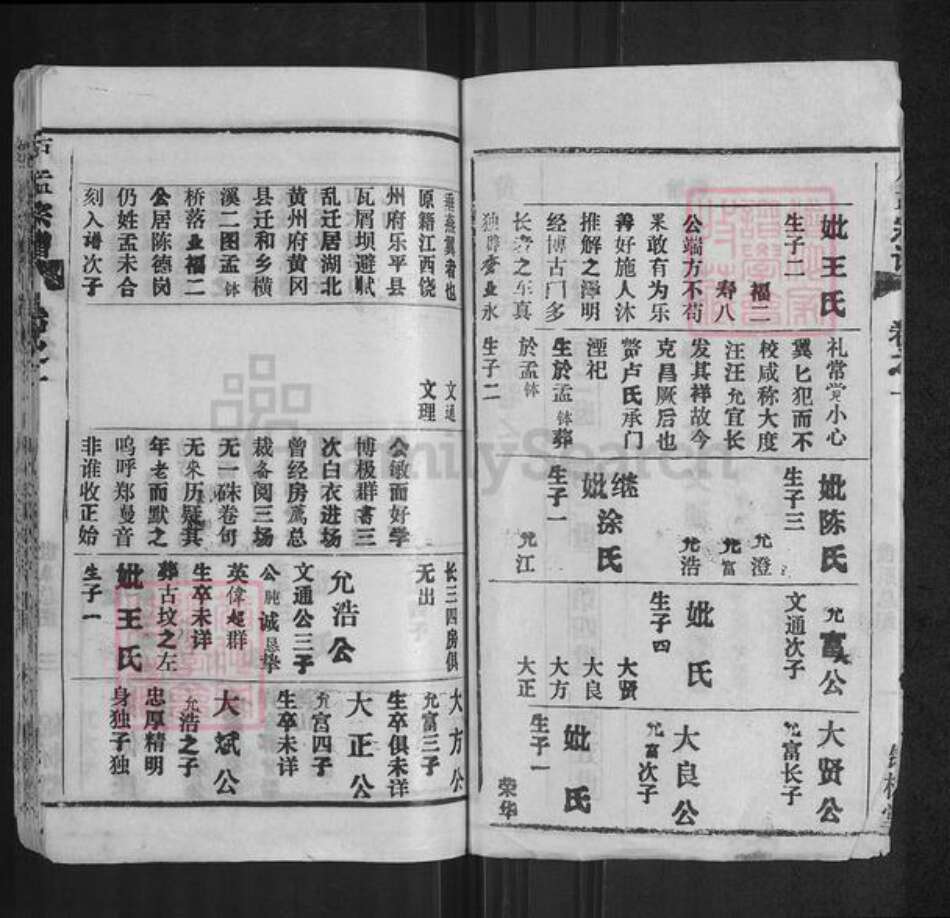 妣王氏
生子二
福二
寿八
公端方不苟
果敢有为乐
善好施人沐
推解之泽明
经博古门多
长者之车真
独辟奎业永
礼常党小心
翼匕犯而不
校咸称大度
汪汪允宜长
发其祥故今
克昌厥后也
卢氏承门
湮祀
生於孟钵葬
於孟钵
生子二
妣陈氏
生子三
允澄
允富
允浩
继妣涂氏
生子一
允江
允富公
文通次子
妣氏
生子四
大贤
大良
大方
大正
大贤公
允富长子
大良公
允富次子
妣氏
生子一
荣华
燕翼者也
原籍江西饶
州府乐平县
瓦屑坝避贼
乱迁居湖北
黄州府黄冈
县迁和乡横
溪二图孟钵
桥落业福二
公居陈德岗
仍姓孟未合
刻入谱次子
文通
文理
公敏而好学
博极群书三
次白衣进场
曾经房荐总
裁备阅三场
无一硃卷何
无来历疑其
年老而默之
呜呼郑曼音
非谁收正始
长三四房俱
无出
允浩公
文通公三子
公肫诚恳挚
英伟起群
生卒未详
葬古坟之左
妣王氏
生子一
大方公
允富三子
生卒俱未详
大正公
允富四子
生卒未详
大斌公
允浩之子
忠厚精明
身独子独
FamilySearch